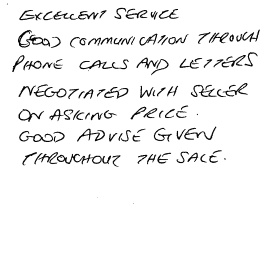 EXCELLENT SERVICE
GOOD COMMUNICATION THROUGH
PHONE CALLS AND LETTERS
NEGOTIATED WITH SELLER
ON ASKING PRICE.
GOOD ADVISE GIVEN
THROUGHOUT THE SALE.